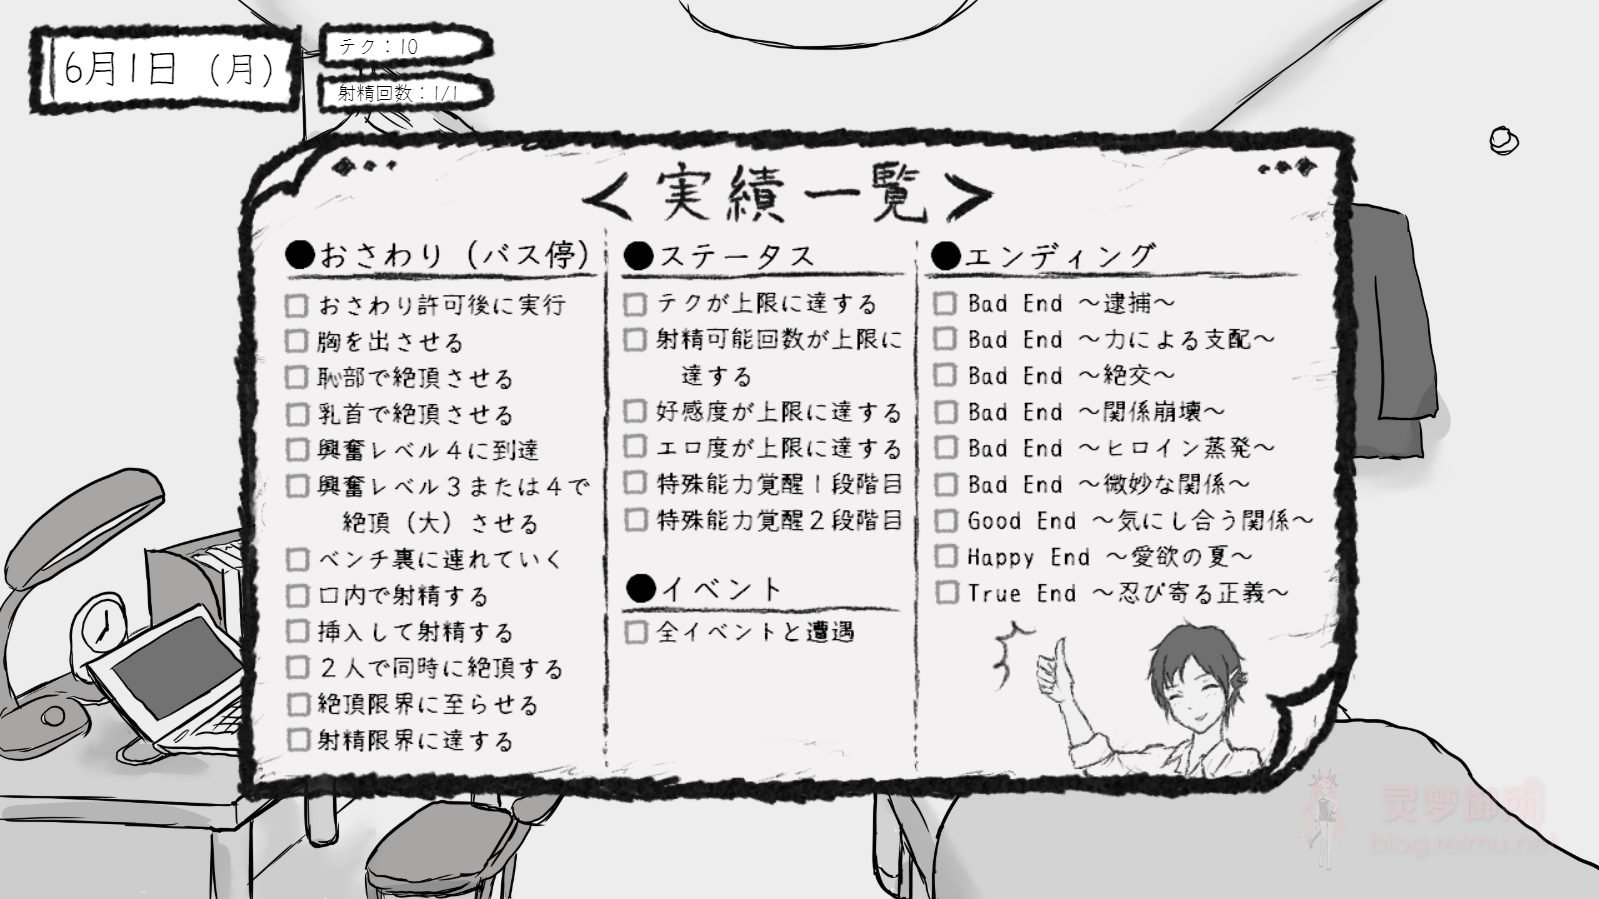 6月1日 (月)
テク:10
射精回数:1/1
<実績一覧>
●おさわり(バス停)
おさわり許可後に実行
胸を出させる
恥部で絶頂させる
乳首で絶頂させる
興奮レベル4に到達
興奮レベル3または4で
絶頂(大)させる
ベンチ裏に連れていく
口内で射精する
挿入して射精する
2人で同時に絶頂する
絶頂限界に至らせる
射精限界に達する
●ステータス
テクが上限に達する
射精可能回数が上限に
達する
好感度が上限に達する
エロ度が上限に達する
特殊能力覚醒1段階目
特殊能力覚醒2段階目
●イベント
全イベントと遭遇
●エンディング
Bad End ~逮捕~
Bad End ~力による支配~
Bad End ~絶交~
Bad End ~関係崩壊~
Bad End ~ヒロイン蒸発~
Bad End ~微妙な関係~
Good End ~気にし合う関係~
Happy End ~愛欲の夏~
True End ~忍び寄る正義~
灵梦御所
blog.reimu.net